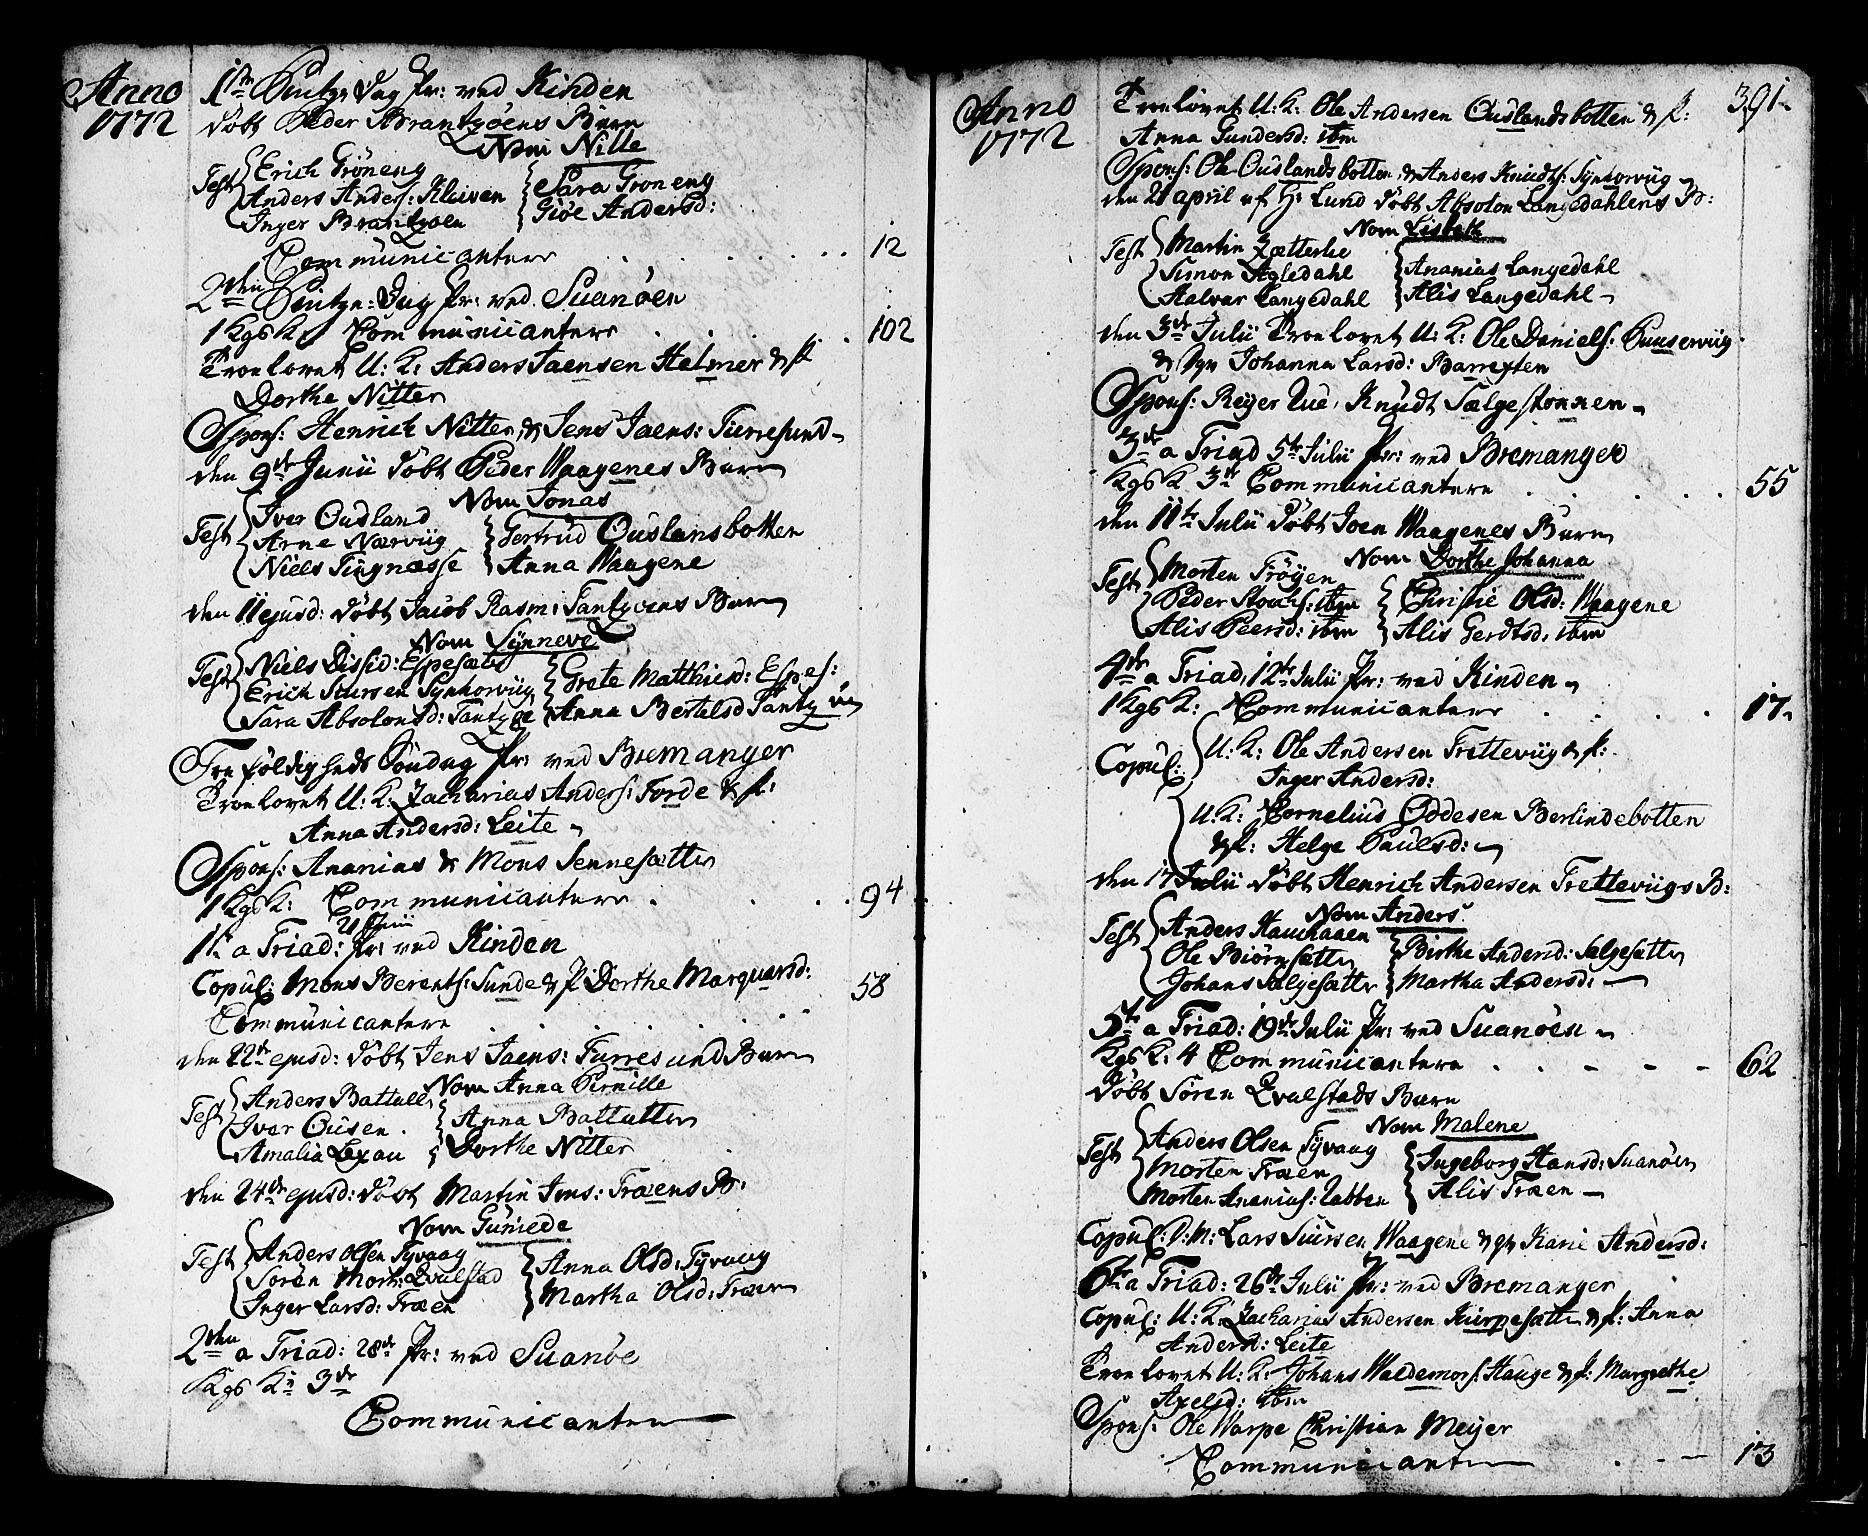 Anno
1772
1ste Pintze Dag Pr: ved Kinden
Døbt Peder Brantzøens Barn
Nom Nille
Test Erich Grøneng
Anders Anders: Kleiven
Inger Brantzøen
Sara Groneng
Giøe Andersd:
Communicantere 12
2den Pintze: Dag Pr: ved Suanøen
1 Kgs K: Communicantere 102
Troelovet U: K: Anders Jaensen Helmer & P:
Dorthe Nitter
Spons: Henrich Nitter & Jens Jaens: Furresund
den 9de Junii Døbt Peder Waagenes Barn
Nom Jonas
Test Iver Ousland
Arne Nærviig
Niels Tingnæsse
Gertrud Ouslansbotten
Anna Waagene
den 11 ejusd: Døbt Jacob Rasm: Fantzøens Barn
Nom Synneve
Test Niels Dissid: Espesæt
Erich Siursen Synhorviig
Sara Absolonsd: Fantzøe
Grete Matthisd: Espes:
Anna Bertelsd Fantzøe
Trefoldigheds Søndag Pr: ved Bremanger
Troelovet U: K: Zacharias Anders: Førde & P:
Anna Andersd: Leite
Spons: Ananias & Mons Sennesætter
1 Kgs K: Communicantere 94
21 Junii
1ste a Triad: Pr: ved Kinden
Copul: Mons Berents: Sunde & P: Dorthe Marquarsd:
Communicantere 58
den 22de ejusd: Døbt Jens Jaens: Furresund Barn
Nom Anna Pernille
Test Anders Battall
Iver Ousen
Amalia Lexau
Anna Battatter
Dorthe Nitter
den 24de ejusd: Døbt Martin Jens: Træens B:
Nom Guniede
Test Anders Olsen Tyvaag
Søren Mort: Qvalstad
Inger Larsd: Træen
Anna Olsd: Tyvaag
Martha Olsd: Træen
2den a Triad: 28de Pr: ved Suanøe
Kgs K: 3de
Communicantere
Anno
1772
391
Troelovet U: K: Ole Andersen Ouslandsbotten & P:
Anna Gundersd: ibm
Spons: Ole Ouslandsbotten & Anders Knudts: Synhorviig
den 21 april af Hr Lund Døbt Absolon Langedahlens B:
Nom Lisbeth
Test Martin Zætterlie
Simon Agledahl
Halvar Langedahl
Ananias Langedahl
Alis Langedahl
den 3de Julii Troelovet U: K: Ole Daniels: Buuserviig
& Pgn Johanna Larsd: Barrexten
Spons: Reyer Lue, Knudt Sælgestønnen
3de a Triad 5te Julii Pr: ved Bremanger
Kgs K 3de Communicantere 55
den 11te Julii Døbt Joen Waagenes Barn
Nom Dorthe Johanna
Test Morten Frøyen
Peder Stochs: ibm
Alis Peersd: ibm
Christie Olsd: Waagene
Alis Gerdtsd: ibm
4de a Triad: 12te Julii Pr: ved Kinden
1 Kgs K: Communicantere 17
Copul: U: K: Ole Andersen Frettevüg & P:
Inger Andersd:
U: K: Cornelius Oddesen Berlindebotten
& P: Helge Paulsd:
den 17 Julii Døbt Henrich Andersen Trettevüigs B:
Nom Anders
Test Anders Hauchaaen
Ole Biørnsætter
Johans Salgesætter
Birthe Andersd: Salgesætter
Martha Andersd:
5te a Triad: 19de Julii Pr: ved Suanøen
Kgs K: 4 Communicantere 62
Døbt Søren Qvalstads Barn
Nom Malene
Test Anders Olsen Tyvaag
Morten Træen
Morten Ananias: Labben
Ingeborg Hansd: Suanøen
Alis Træen
Copul: D: M: Lars Siursen Waagene & qv Karie Andersd:
6te a Triad: 26de Julii Pr: ved Bremanger
Copul: U: K: Zacharias Andersen Kürpesætter & P: Anna
Andersd: Leite
Troelovet U: K: Johans Waldemors: Hauge & P: Margrethe
Axelsd: ibm
Spons: Ole Warpe Christian Meyer
Communicantere 13